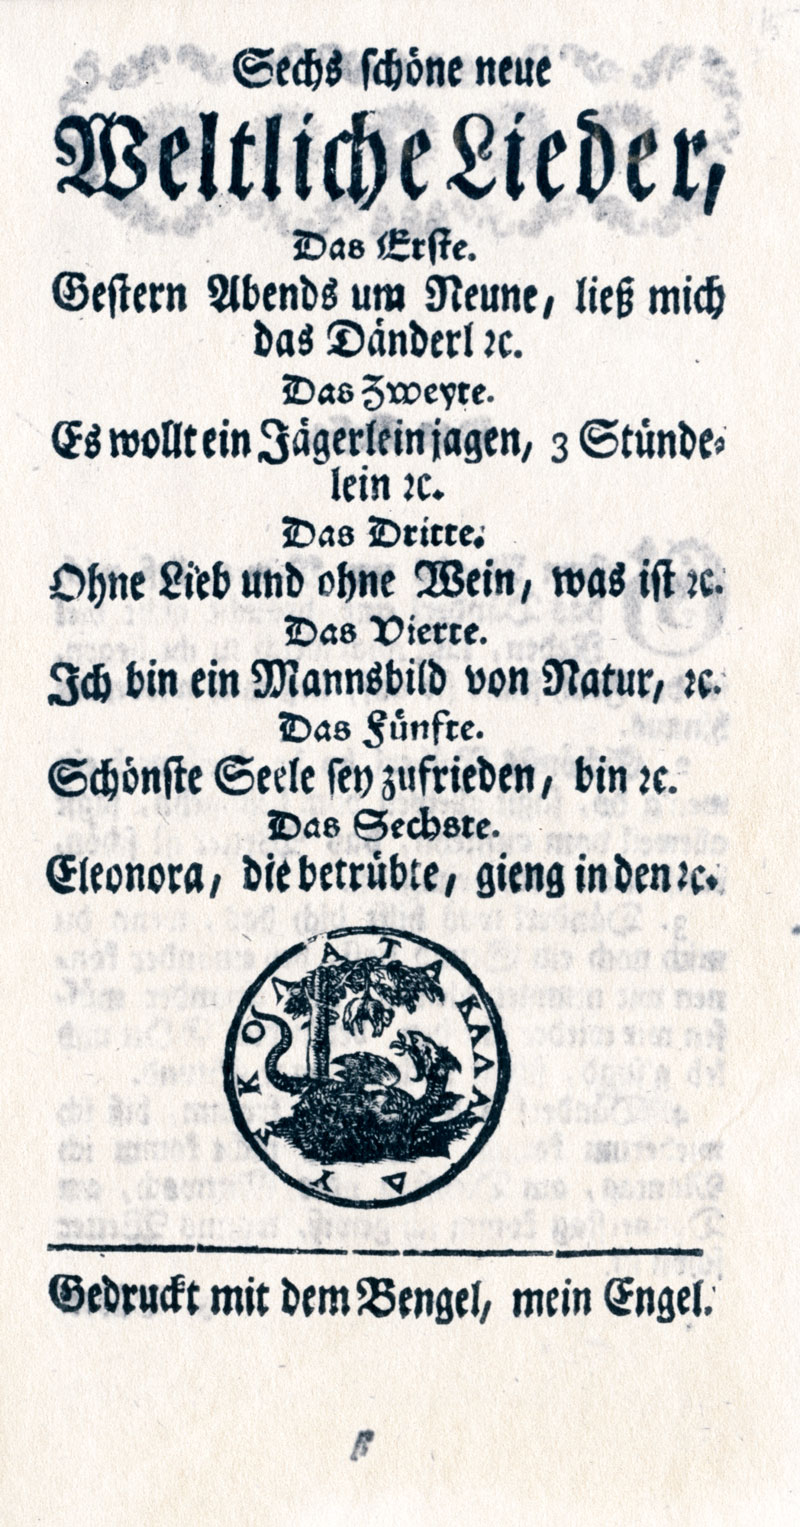 Sechs schöne neue
Weltliche Lieder,
Das Erste.
Gestern Abends um Neune, ließ mich
das Dänderl ꝛc.
Das Zweyte.
Es wollt ein Jägerlein jagen, 3 Stünde⸗
lein ꝛc.
Das Dritte.
Ohne Lieb und ohne Wein, was ist ꝛc.
Das Vierte.
Ich bin ein Mannsbild von Natur, ꝛc.
Das Fünfte.
Schönste Seele sey zufrieden, bin ꝛc.
Das Sechste.
Eleonora, die betrübte, gieng in den ꝛc.
ΔΥΣΚΟΛΑ ΤΑ ΚΑΛΑ
Gedruckt mit dem Bengel, mein Engel.